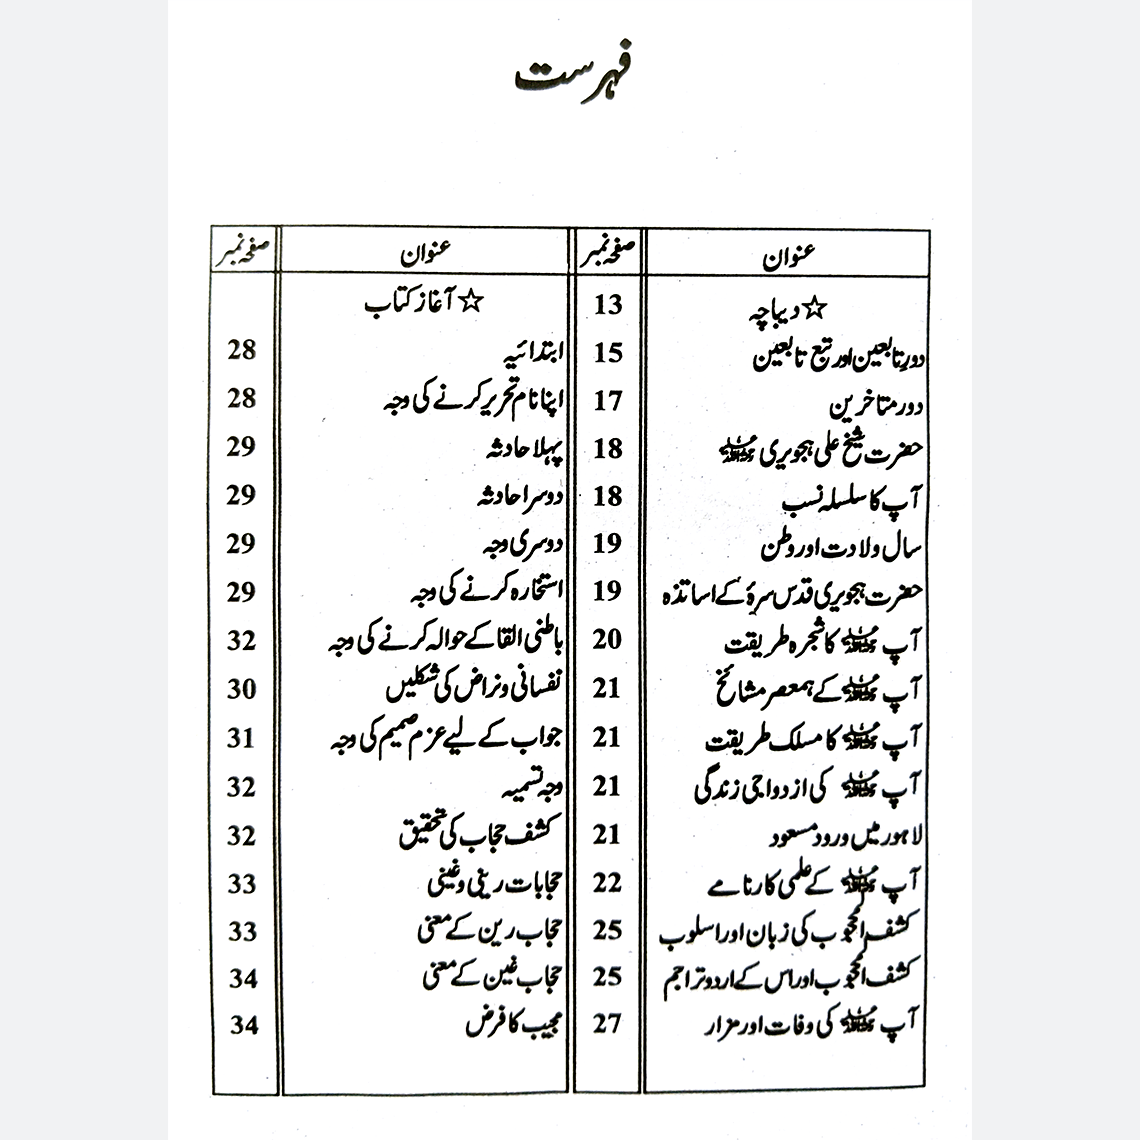 فہرست
عنوان صفحہ نمبر عنوان صفحہ نمبر
☆ دیباچہ 13
دورِتابعین اور تبع تابعین 15
دور متاخرین 17
حضرت شیخ علی ہجویری رحمۃ اللہ علیہ 18
آپ کا سلسلہ نسب 18
سال ولادت اور وطن 19
حضرت ہجویری قدس سرہٗ کے اساتذہ 19
آپ رحمۃ اللہ علیہ کا شجرہ طریقت 20
آپ رحمۃ اللہ علیہ کے ہمعصر مشائخ 21
آپ رحمۃ اللہ علیہ کا مسلک طریقت 21
آپ رحمۃ اللہ علیہ کی ازدواجی زندگی 21
لاہور میں ورود مسعود 21
آپ رحمۃ اللہ علیہ کے علمی کارنامے 22
کشف المحجوب کی زبان اور اسلوب 25
کشف المحجوب اور اس کے اردو تراجم 25
آپ رحمۃ اللہ علیہ کی وفات اور مزار 27
☆ آغاز کتاب
ابتدائیہ 28
اپنا نام تحریر کرنے کی وجہ 28
پہلا حادثہ 29
دوسرا حادثہ 29
دوسری وجہ 29
استخارہ کرنے کی وجہ 29
باطنی القا کے حوالہ کرنے کی وجہ 32
نفسانی ونراض کی شکلیں 30
جواب کے لیے عزم صمیم کی وجہ 31
وجہ تسمیہ 32
کشف حجاب کی تحقیق 32
حجابات رینی وغینی 33
حجاب رین کے معنی 33
حجاب غین کے معنی 34
مجیب کا فرض 34